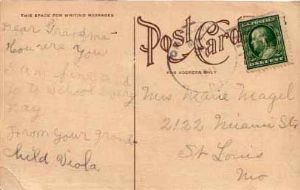 THIS SPACE FOR WRITING MESSAGES
Post Card
FOR ADDRESS ONLY
Dear Grandma
How are you
I am fine and
go to school every
day
From your grand
child Viola.
Mrs Marie Magel
2122 Miami St
St Louis
Mo
ONE CENT